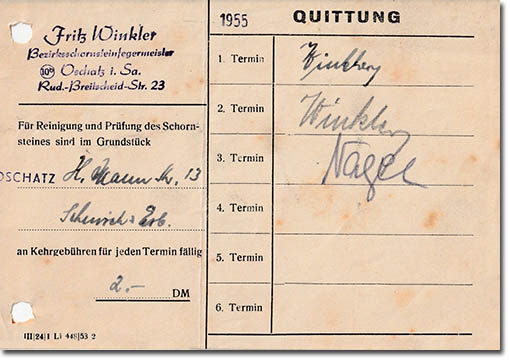 Fritz Winkler
Bezirksschornsteinfegermeister
(10b) Oschatz i. Sa.
Rud.-Breitscheid-Str. 23
Für Reinigung und Prüfung des Schorn-
steines sind im Grundstück
OSCHATZ H. Mann Str. 13
Erb.
an Kehrgebühren für jeden Termin fällig
2.- DM
III|24|1 Li 448|53 2
1955 QUITTUNG
1. Termin
2. Termin Winkler
3. Termin Nagel
4. Termin
5. Termin
6. Termin